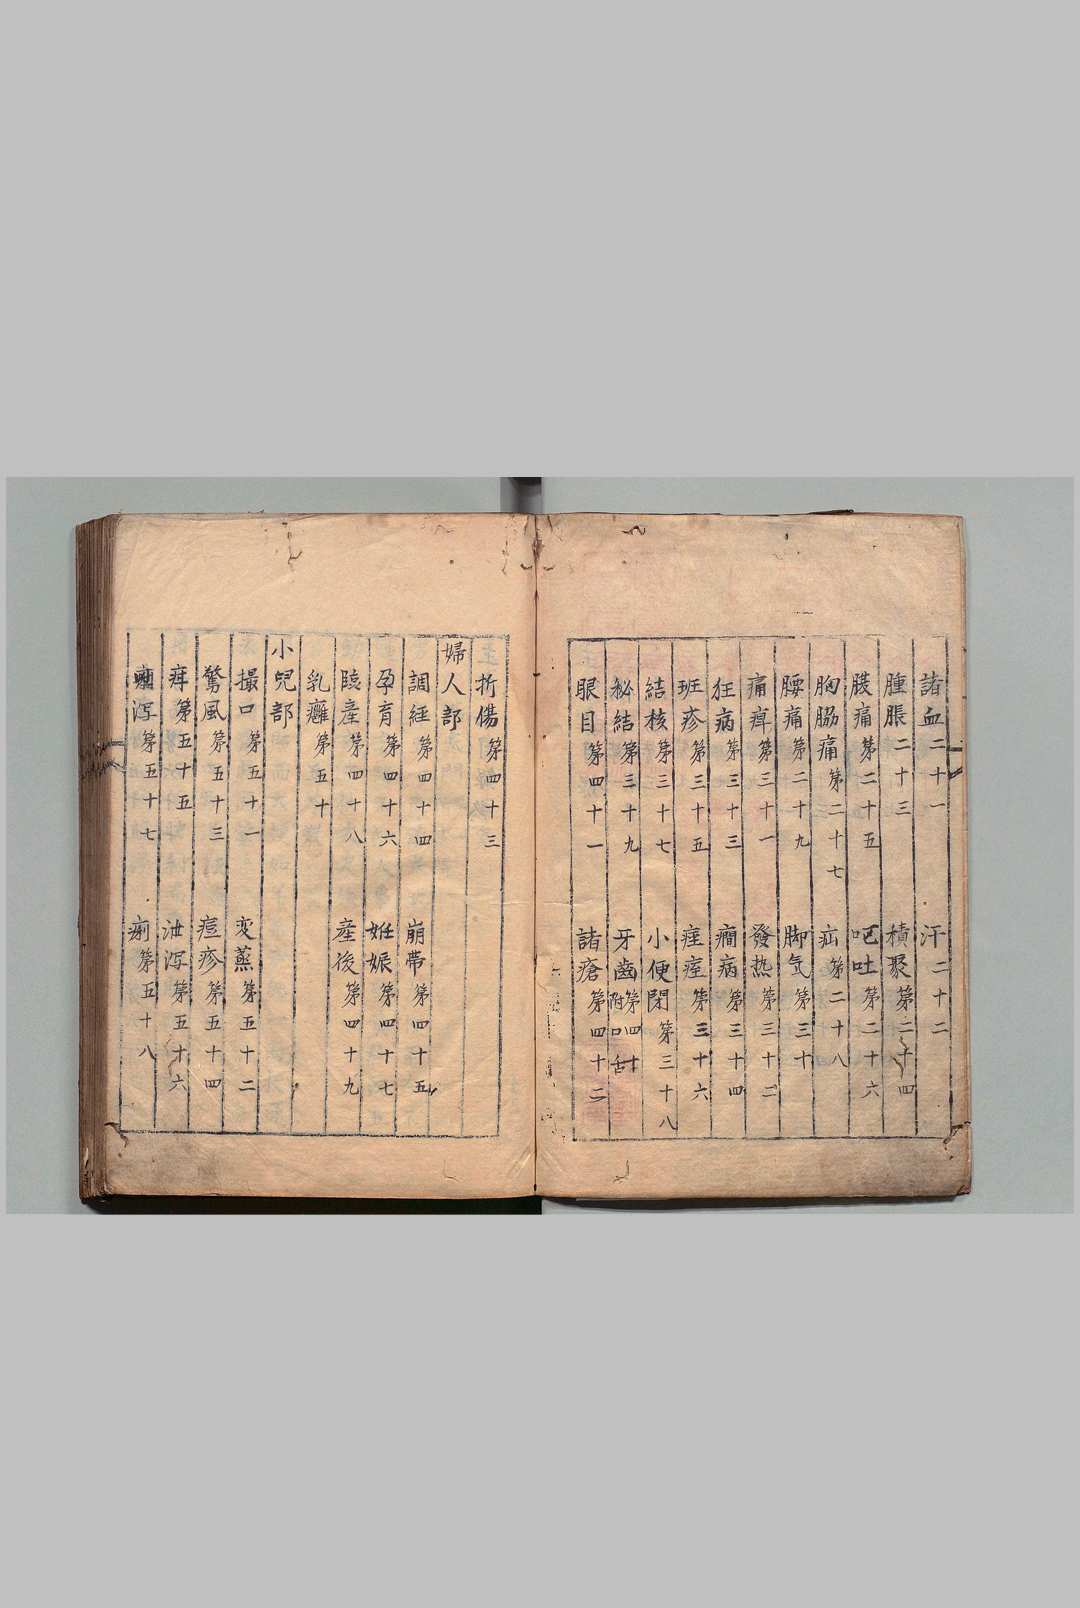 諸血二十一 汗二十二
腫脹二十三 積聚第二十四
腹痛第二十五 吧吐第二十六
胸脇痛第二十七 疝第二十八
腰痛第二十九 脚気第三十
痛痺第三十一 發热第三十二
狂病第三十三 癇病第三十四
班疹第三十五 痙第三十六
結核第三十七 小便閉第三十八
秘結第三十九 牙齒第四十附口舌
眼目第四十一 諸瘡第四十二
折傷第四十三
婦人部
調経第四十四 崩帶第四十五
孕育第四十六 妊娠第四十七
産第四十八 産後第四十九
乳癰第五十
小兒部
撮口第五十一 变蒸第五十二
驚風第五十三 痘疹第五十四
疳第五十五 泄泻第五十六
泻第五十七 痢第五十八